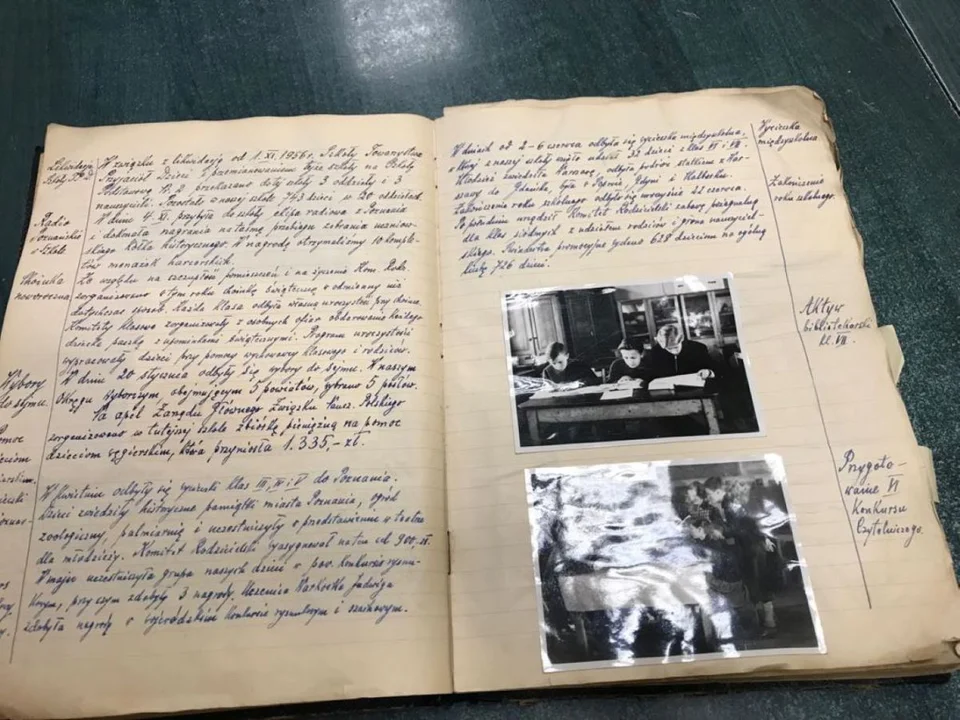 Likwidacja
Szkoły TPD
W związku z likwidacją od 1. XI. 1956 r. Szkoły Towarzystwa
Przyjaciół Dzieci i przemianowaniem tejże szkoły na Szkołę
Podstawową N. 2 przekazano do tej szkoły 3 oddziały i 3
nauczycieli. Pozostało w naszej szkole 743 dzieci w 20 oddziałach.
Radio
poznańskie
w szkole
W dniu 4. XI. przybyła do szkoły ekipa radiowa z Poznania
i dokonała nagrania na taśmę przebiegu zebrania uczniow-
skiego Kółka historycznego. W nagrodę otrzymaliśmy 10 komple-
tów menażek harcerskich.
Choinka
noworoczna
Ze względu na szczupłość pomieszczeń i na życzenie Kom. Rodz.
zorganizowano w tym roku choinkę świąteczną w odmienny niż
dotychczas sposób. Każda klasa odbyła własną uroczystość przy choince.
Komitety klasowe zorganizowały z osobnych ofiar obdarowanie każdego
dziecka paczką z upominkami świątecznymi. Program uroczystości
wypracowały dzieci przy pomocy wychowawcy klasowego i rodziców.
Wybory
do sejmu.
W dniu 20 stycznia odbyły się wybory do Sejmu. W naszym
Okręgu Wyborczym, obejmującym 5 powiatów, wybrano 5 posłów.
Na apel Zarządu Głównego Związku Naucz. Polskiego
zorganizowano w tutejszej szkole zbiórkę pieniężną na pomoc
dzieciom węgierskim, która przyniosła 1.335,- zł.
W kwietniu odbyły się wycieczki klas III, IV i V do Poznania.
Dzieci zwiedziły historyczne pamiątki miasta Poznania, ogród
zoologiczny, palmiarnię i uczestniczyły w przedstawieniu w teatrze
dla młodzieży. Komitet Rodzicielski wyasygnował na ten cel 900,- zł.
W maju uczestniczyła grupa naszych dzieci w pow. konkursie rysun-
kowym, przy czym zdobyły 3 nagrody. Uczennica Jadwiga
zdobyła nagrodę w wojewódzkim konkursie rysunkowym i
W dniach od 2-6 czerwca odbyła się wycieczka międzyszkolna,
w której z naszej szkoły wzięło udział 32 dzieci z klas VI i VII.
Młodzież zwiedziła Warszawę, odbyła podróż statkiem z War-
szawy do Gdańska, była w Sopocie, Gdyni i Malborku.
Zakończenie roku szkolnego odbyło się uroczyście 22 czerwca.
Po południu urządził Komitet Rodzicielski zabawę pożegnalną
dla klas siódmych z udziałem rodziców i grona nauczyciel-
skiego. Świadectwa promocyjne wydano 628 dzieciom na ogólną
liczbę 726 dzieci.
Wycieczka
międzyszkolna
Zakończenie
roku szkolnego.
Aktyw
bibliotekarski
kl. VII.
Przygoto-
wanie VI
Konkursu
Czytelniczego.